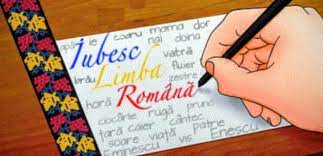 pâine ie mama dor
Iubesc nai doina
vatră
brâu Limba fluier
zestre
horă Română
ciocârlie rugă prunc
țară caier cântec
soare viață vis Enescu
Eminescu patrie